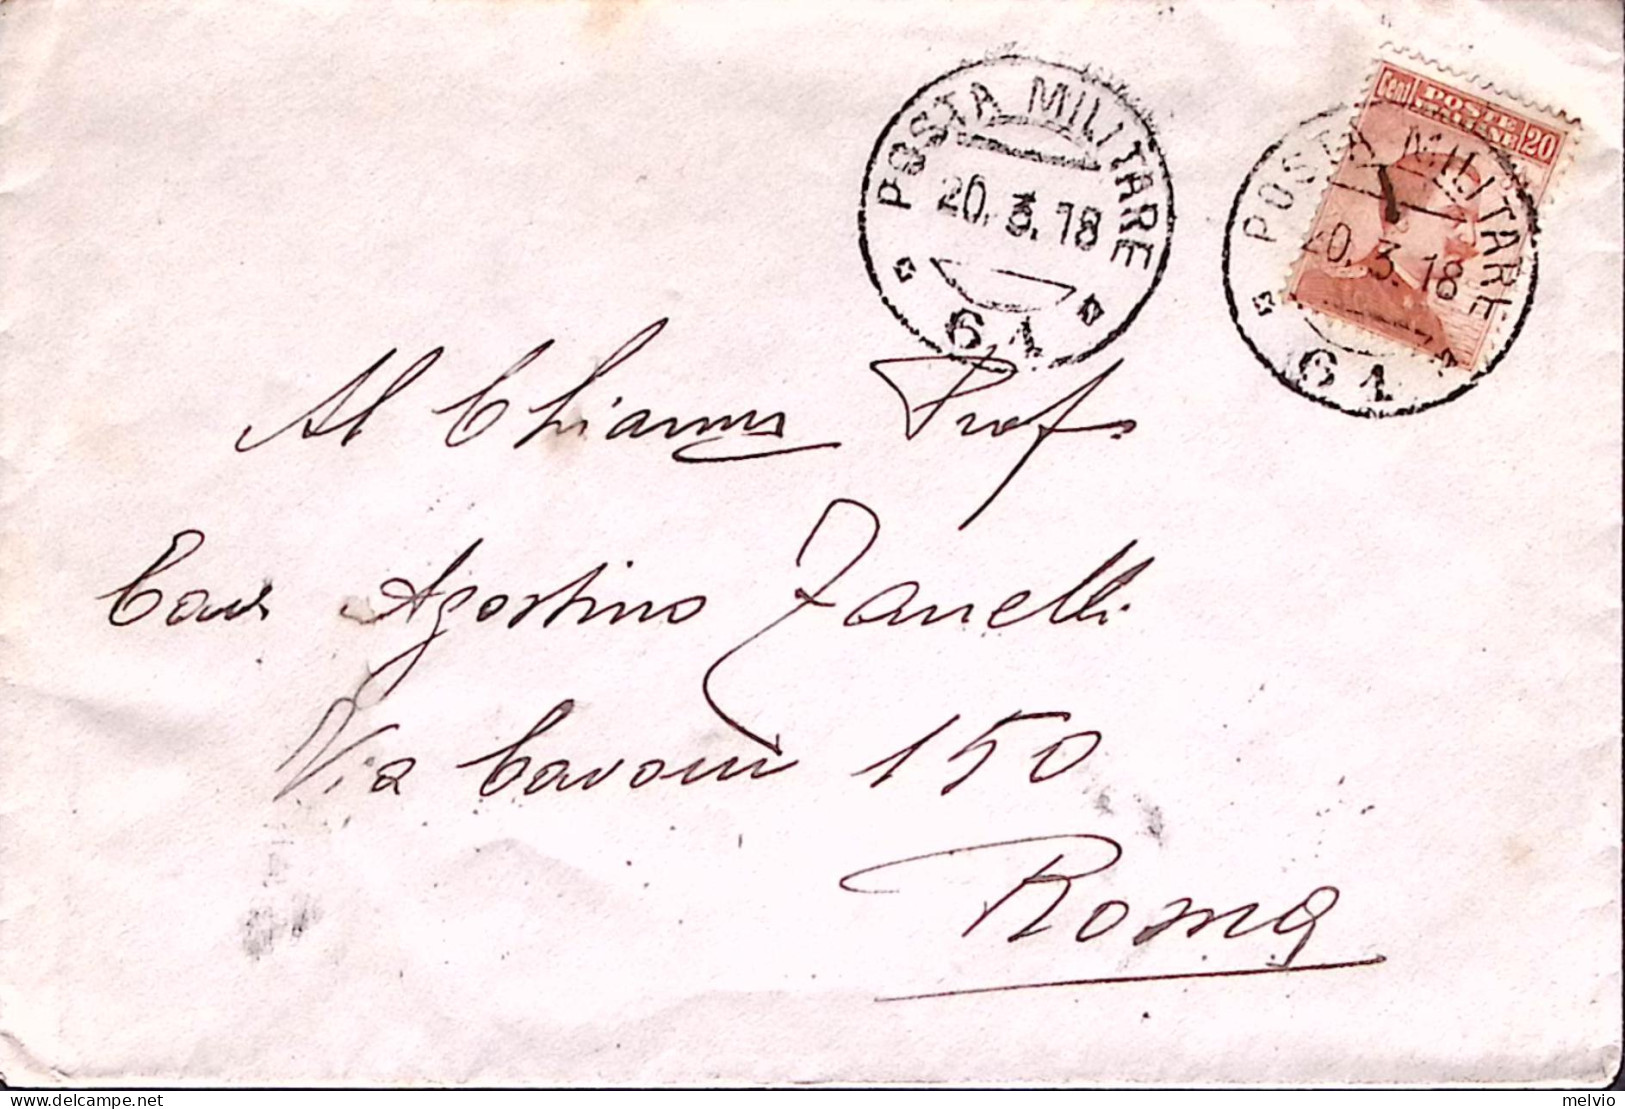 POSTA MILITARE
20.3.18
61
Cent POSTE ITALIANE 20
POSTA MILITARE
20.3.18
61
Al Chiarmo Prof.
Cav Agostino Zanelli
Via Cavour 150
Roma
melvio